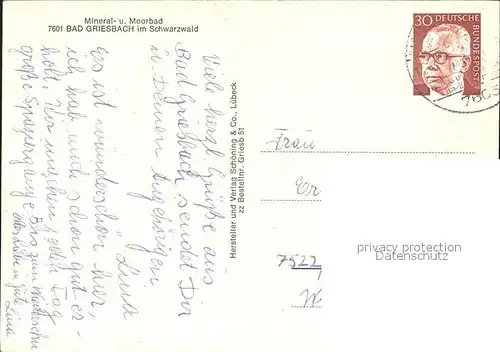 Mineral- u. Moorbad
7601 BAD GRIESBACH im Schwarzwald
Viele herzl. Grüße aus
Bad Griesbach sendet Dir
u. Deinen Angehörigen
Lina
Es ist wunderschön hier,
ich hab mich schon gut er-
holt. Wir machen jeden Tag
große Spaziergänge. Bis zum Wiedersehn
alles Liebe u. Gute
Lina
Hersteller und Verlag Schöning & Co., Lübeck
zz Bestellnr. Griesb 51
30 DEUTSCHE
BUNDESPOST
760
Frau
Er
7522
privacy protection
Datenschutz